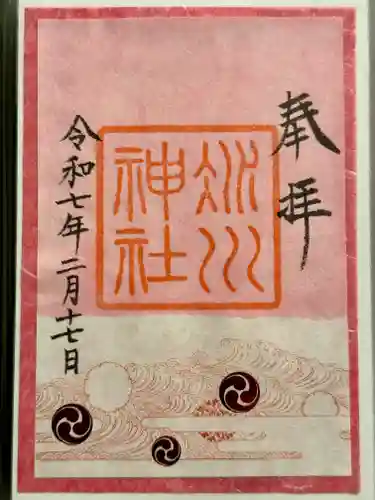 奉拝
冰川
神社
令和七年二月十七日